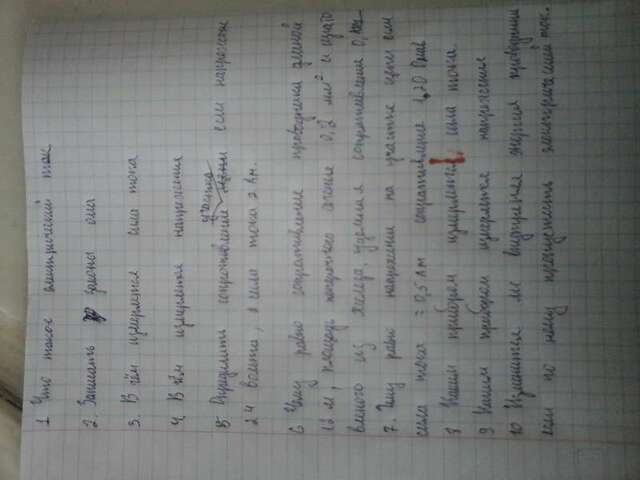 1 Что такое электрический ток
2. Записать законы ома
3. В чём измеряется сила тока
4. В чём измеряется напряжение
5. Определить сопротивление участка цепи если напряжение
24 вольта, а сила тока 2 Ам.
6 Чему равно сопротивление проводника длиной
12 м, площадь поперечного сечение 0,2 мм² и изгото
вленого из железа удельная сопротивления 0,1
7. Чему равно напряжение на участке цепи если
сила тока = 0,5 Ам сопротивление 20 Омов
8 Каким прибором измеряется сила тока.
9 Каким прибором измеряется напряжение
10 Изменится ли внутренняя энергия проводника
если по нему пропустить электрический ток.